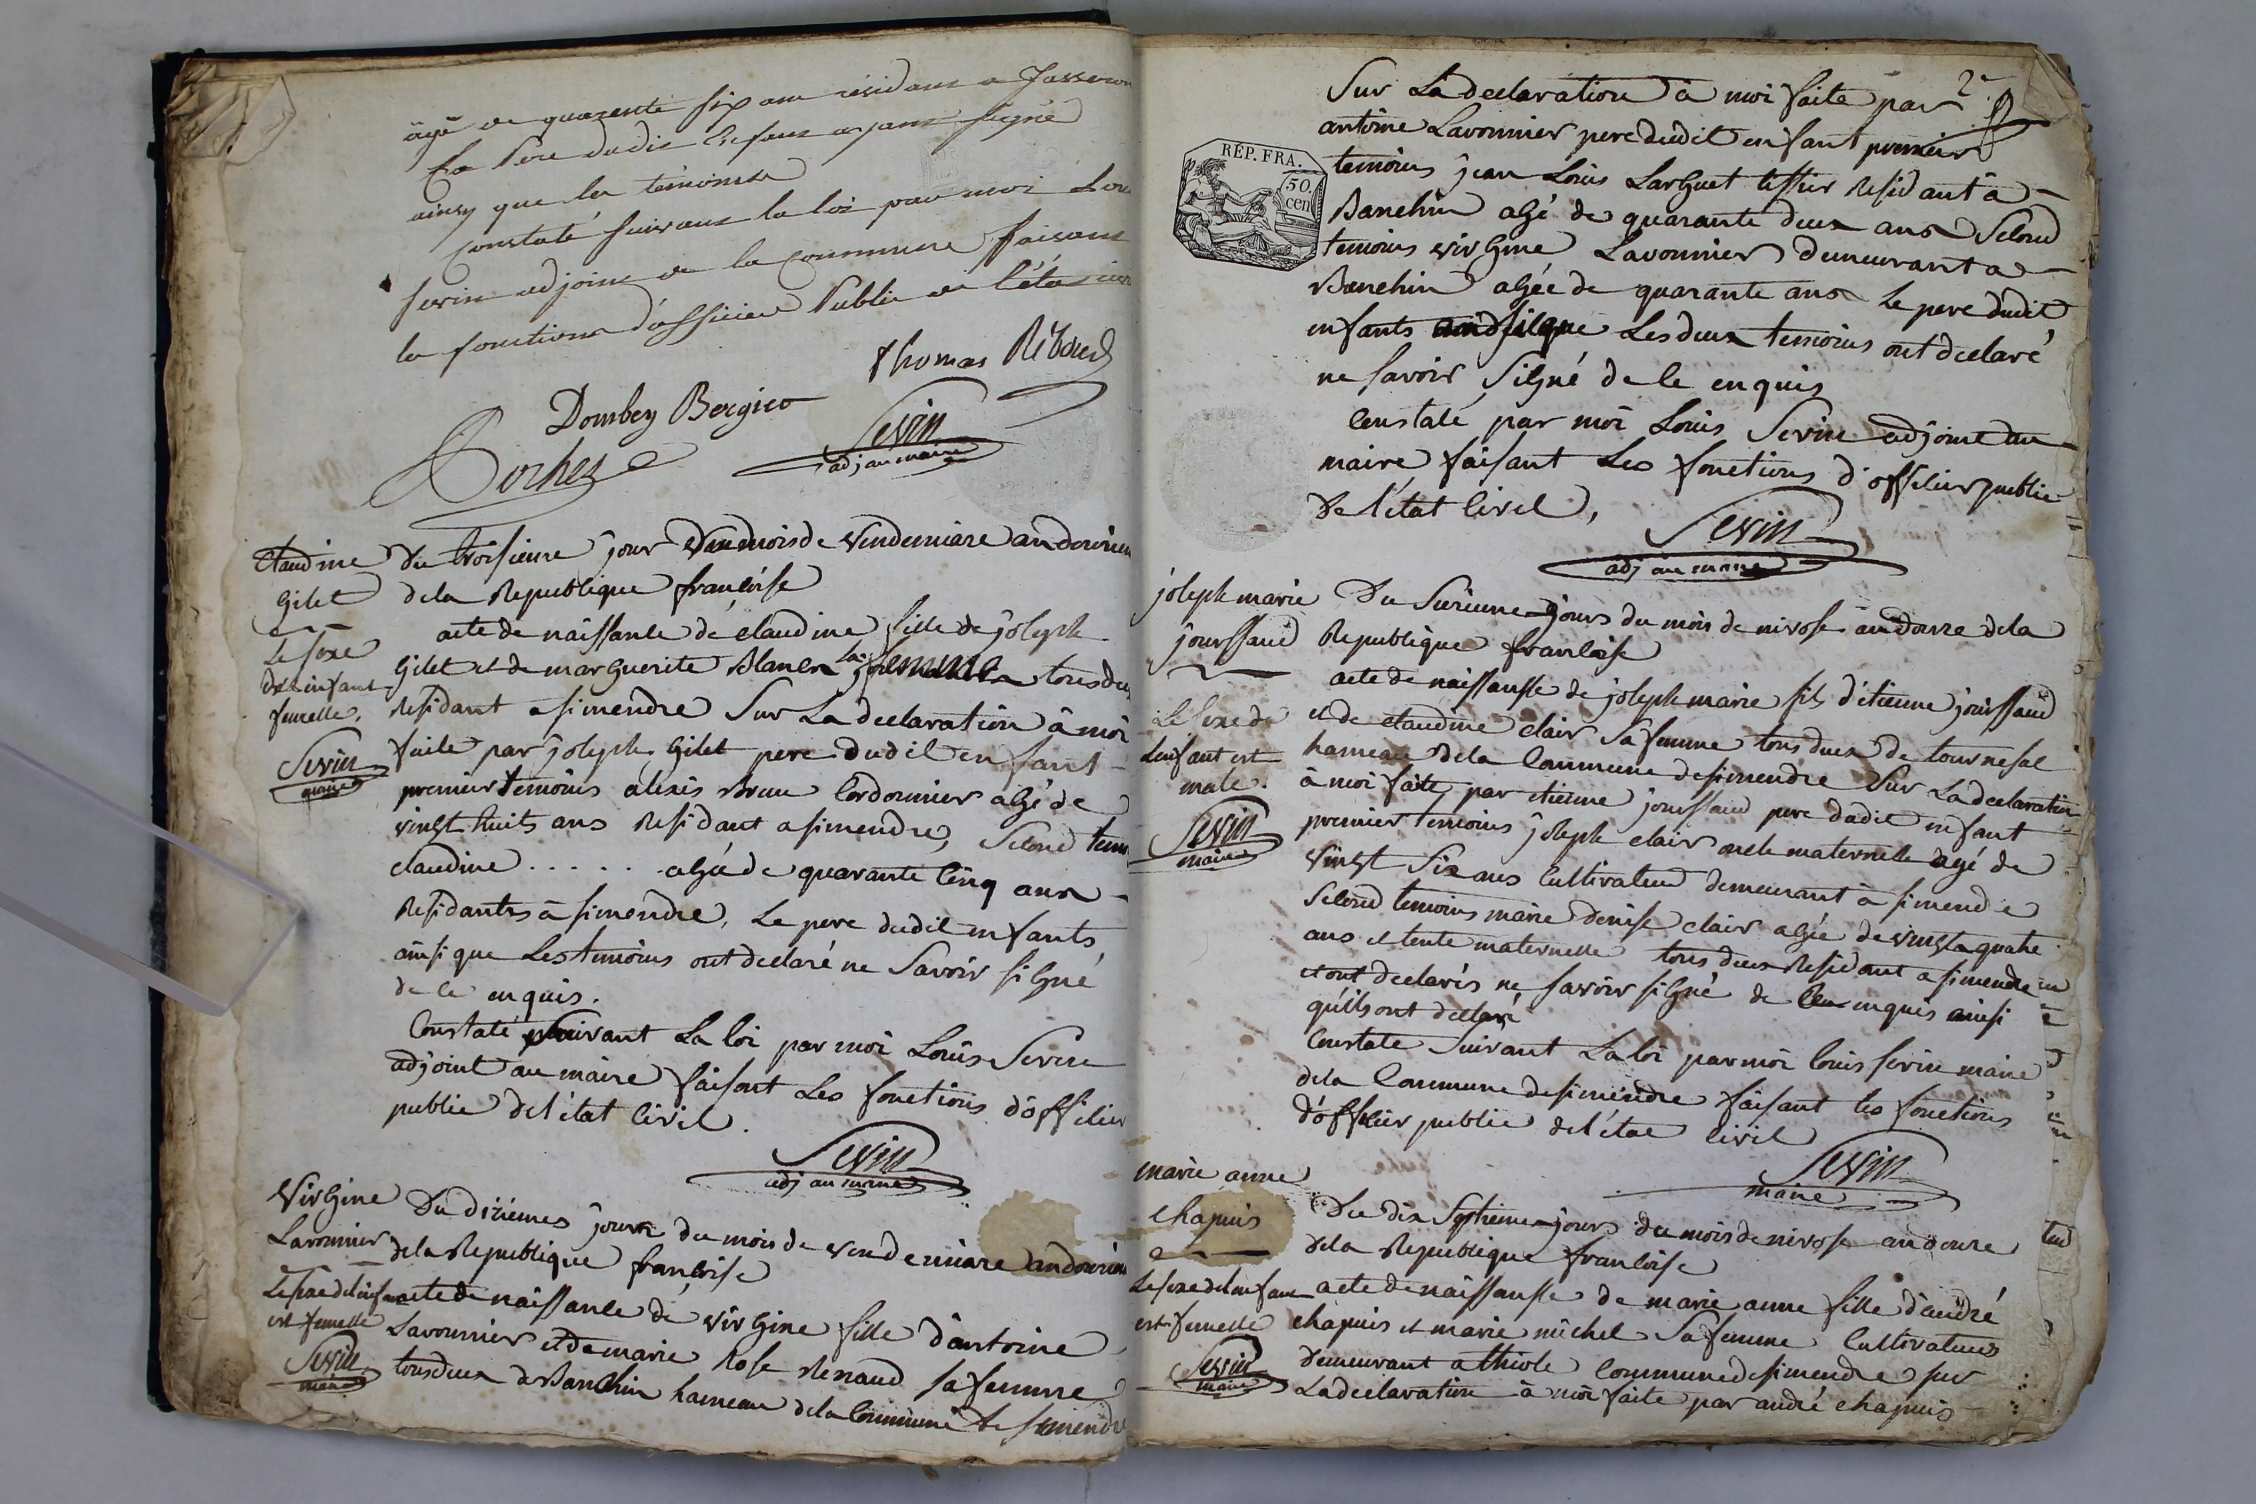 âgé de quarente six ans résidant a Jasseron
Le Père dudit Enfant ayant signé
ainsy que les témoins
constaté suivant la loi par moi Louis
sevin adjoint de la commune faisant
les fonctions d'officier Public de l'état civil
Thomas Riboud
Dombey Bergier
Sevin
adj au maire
Claudine
Gilet
Le sexe
de l'enfant
femelle.
Sevin
maire
Du troisieme jour du mois de vendemiare an douzieme
de la Republique francoise
acte de naissance de claudine fille de joseph
Gilet et de marguerite Blanc La femme tous deux
Residant a simendre Sur La declaration â moi
faite par joseph Gilet pere dudit enfant
premier temoins alexis Brun Cordonnier aGé de
vingt huits ans Residant a simendre, Second temoins
claudine . . . . . aGée de quarante Cinq ans
Residants â simendre, Le pere dudit enfants
ainsi que Les temoins ont declaré ne Savoir siGné
de ce enquis.
Constaté suivant La loi par moi Louis Sevin
adjoint au maire faisant Les fonctions d'officier
public de l'état Civil.
Sevin
adj au maire
VirGine
Lavonnier
Le sexe de l'enfant
est femelle
Sevin
maire
Du dixiemes jours du mois de vendemiare an douzieme
de la Republique francoise
acte de naissance de virGine fille d'antoine
Lavonnier et de marie Rose Renaud sa femme
tous deux de Banchin hameau de la Commune de simendre
2e
Sur La declaration à moi faite par
antoine Lavonnier pere dudit enfant premier
temoins jean Louis LarGuet tissier Residant â
Banchin aGé de quarante deux ans Second
temoins virGine Lavonnier demeurant a
Banchin aGée de quarante ans Le pere dudit
enfants Les deux temoins ont declaré
ne savoir siGné de ce enquis
Constaté par moi Louis Sevin adjoint au
maire faisant Les fonctions d'officier public
de l'état Civil,
RÉP. FRA.
50.
cen
Sevin
adj au maire
joseph marie
jourssaud
Le sexe de
Lenfant est
male.
Sevin
maire
Du Sixieme jours du mois de nivose an douze de la
Republique francoise
acte de naissansse de joseph marie fils d'etienne jourssaud
et de claudine clair Sa femme tous deux de tournesol
hameau de la Commune de simendre Sur La declaration
à moi faite par etienne jourssaud pere dudit enfant
premier temoins joseph clair oncle maternelle agé de
vingt Six ans Cultivateur demeurant à simendre
Second temoins marie Denise clair aGée de vingt quatre
ans et tente maternelle tous deux Residant a simendre
et ont declarés ne savoir siGné de ce enquis ainsi
qu'ils ont declaré
Constate Suivant La loi par moi louis sevin maire
de la Commune de simendre faisant les fonctions
d'officier public de l'état civil
Sevin
maire
marie anne
chapuis
Le sexe de lenfant
est femelle
Sevin
maire
Du dix Septieme jours du mois de nivose an douze
de la Republique francoise
acte de naissansse de marie anne fille d'andré
chapuis et marie michel Sa femme Cultivateurs
demeurant a thiole commune de simendre sur
La declaration à moi faite par andré chapuis